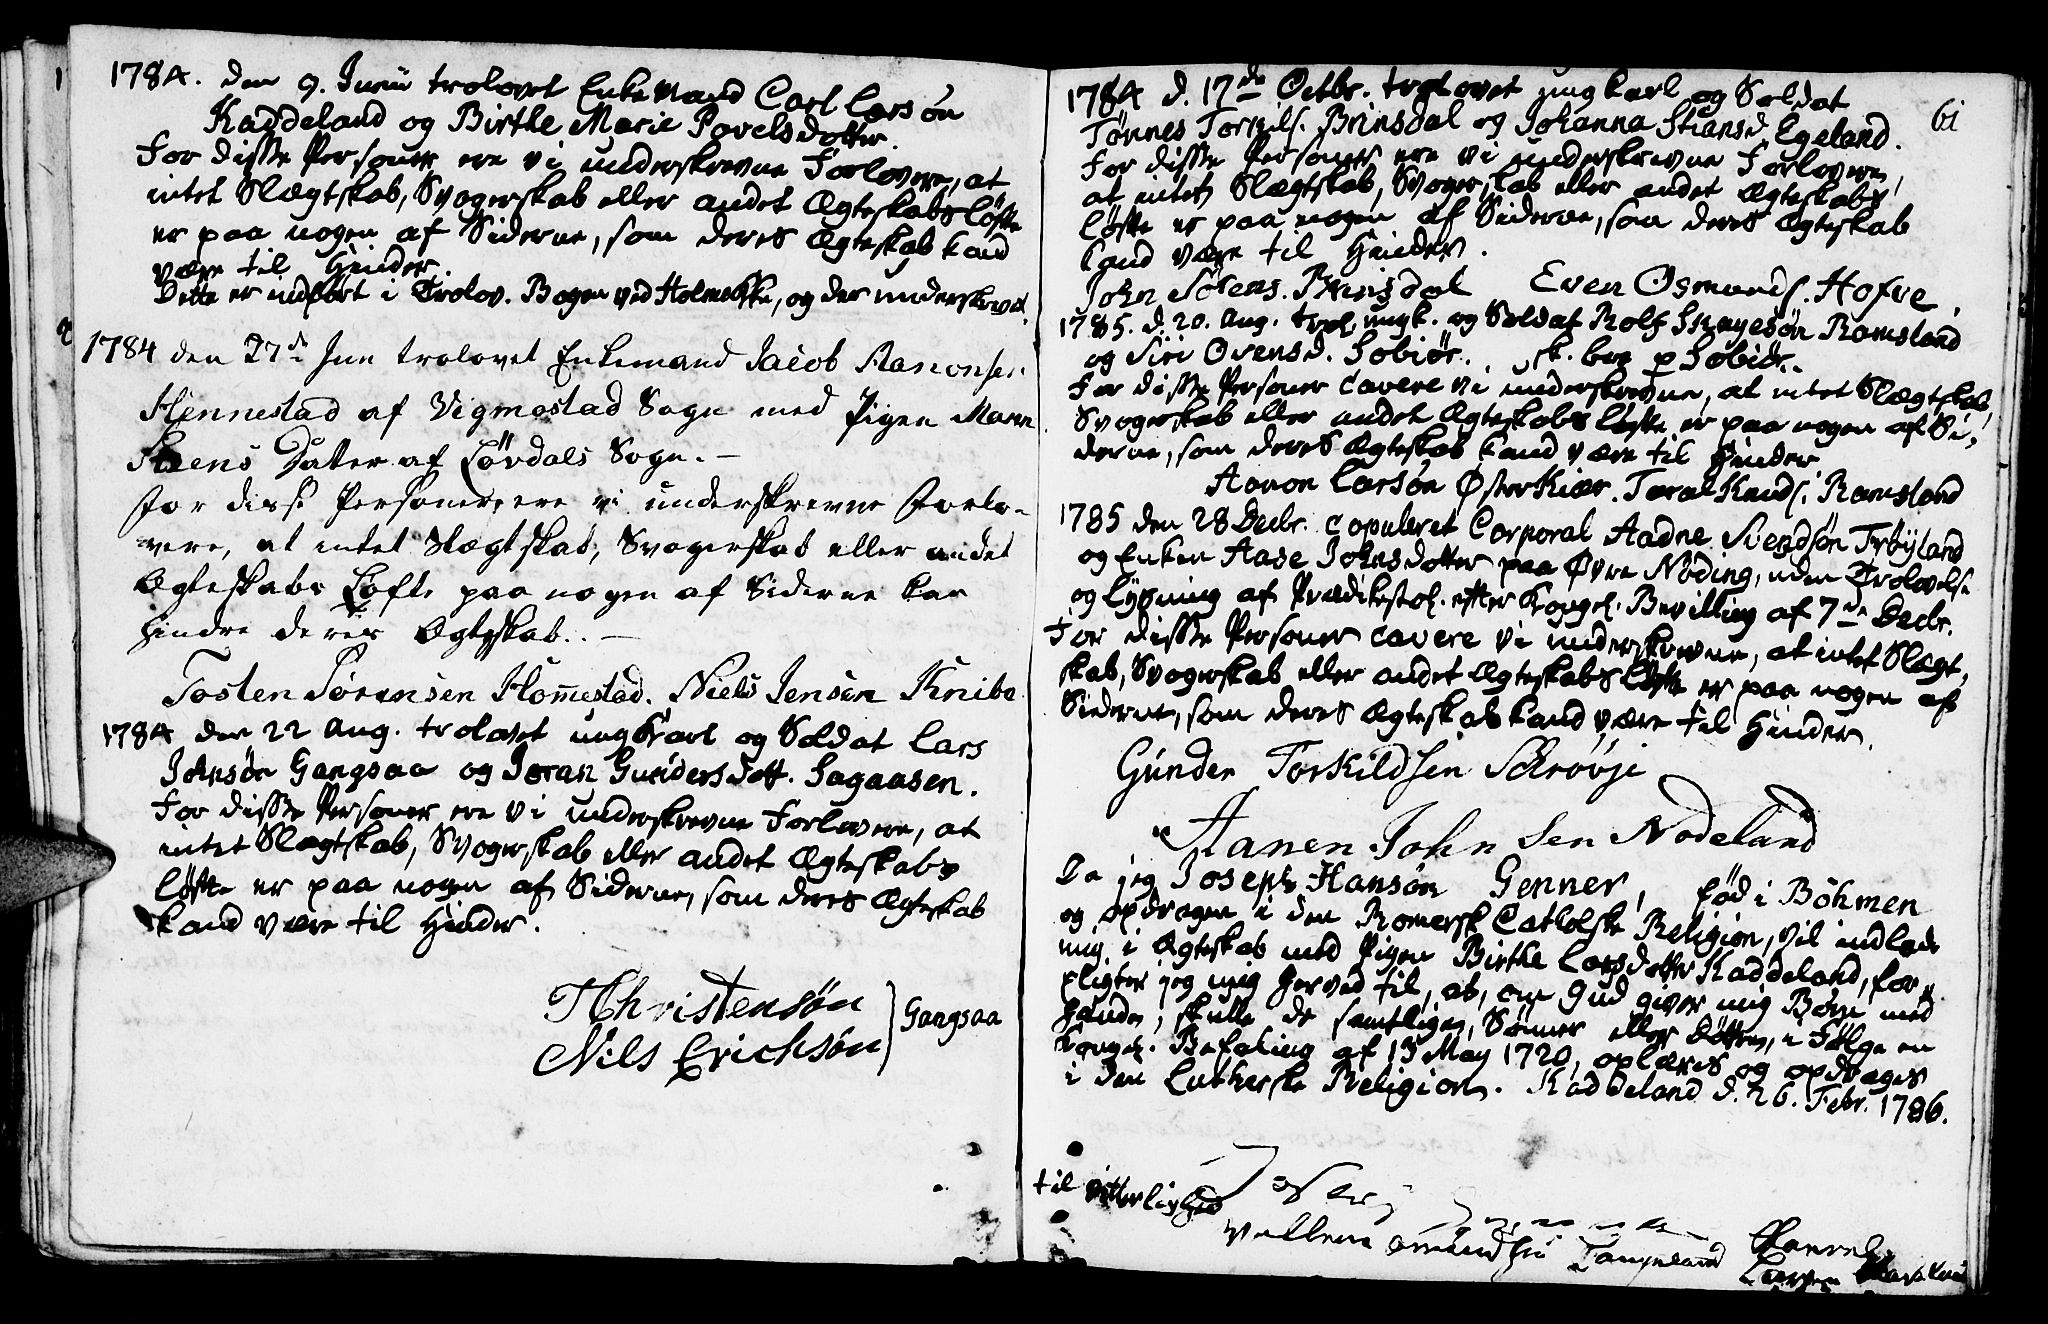 1784. den 9. Junii trolovet Enkemand Carl Larsøn
Kaddeland og Birthe Marie Povelsdotter.
For disse Personer ere vi underskrevne Forlovere, at
intet Slægtskab, Svogerskab eller andet Ægteskabsløfte
er paa nogen af Siderne, som deres Ægteskab kand
være til Hinder.
Dette er indført i Trolov. Bogen ved Holme, og der underskrevet.
1784 den 27de Jun trolovet Enkemand Jacob Aanonsen
Hennestad af Vigmostad Sogn med Pigen Maren
Steens Dater af Løvdals Sogn. —
for disse Personer, ere vi underskrevne Forlo-
vere, at intet Slægtskab, Svogerskab eller andet
Ægteskabs Løfte paa nogen af Siderne kan
hindre deres Ægteskab. —
Tosten Sørensen Hommestad. Niels Jensen Knibe
1784 den 22 Aug. trolovet ungKarl og Soldat Lars
Johnsøn Gangsaa og Joran Gundersdott. Lagaasen.
For disse Personer ere vi underskrevne Forlovere, at
intet Slægtskab, Svogerskab eller andet Ægteskabs
løfte er paa nogen af Siderne, som deres Ægteskab
kand være til Hinder.
T Christensøn
Nils Erichsøn } Gangsaa
61
1784 d. 17de Octbr. trolovet ungkarl og Soldat
Tønnes Torkils. Brinsdal og Johanna Stiansd. Egeland.
For disse Personer ere vi underskrevne Forlovere,
at intet Slægtskab, Svogerskab eller andet Ægteskabs
løfte er paa nogen af Siderne, som deres Ægteskab
kand være til Hinder.
John Sørens. Brinsdal Even Osmunds. Hofve.
1785. d. 20. Aug. trol. ungk. og Soldat Rolf Skayesøn Ramsland
og Siri Ovensd. Løbiør. sk. boe p Løbiør.
For disse Personer cavere vi underskrevne, at intet Slægtskab,
Svogerskab eller andet Ægteskabs løfte er paa nogen af Si-
derne, som deres Ægteskab kand være til Hinder.
Aanon Larsøn ØsterKiær. Taral Knuds. Ramsland
1785 den 28 Decbr. copuleret Corporal Aadne Svendsøn Trøyland
og Enken Aase Johnsdotter paa Øvre Nøding, uden Trolovelse
og Lysning af Prædikestol. efter Kongel. Bevilling af 7de Decbr.
For disse Personer cavere vi underskrevne, at intet Slægt-
skab, Svogerskab eller andet Ægteskabs Løfte er paa nogen af
Siderne, som deres Ægteskab kand være til Hinder.
Gunder Torkildsen Schrøvje
Aanen John sen Nodeland
Da jeg Joseph Hansøn Genner, fød i Böhmen
og opdragen i den Romersk Catholske Religion, vil indlade
mig i Ægteskab med Pigen Birthe Larsdotter Kaddeland, for-
pligter jeg mig herved til, at, om Gud giver mig Børn med
hende, skulle de samtlige, Sønner eller Døttre, i Følge en
Kongel. Befaling af 13 May 1720, oplæres og opdrages
i den Lutherske Religion. Kaddeland d. 26. Febr. 1786.
til Vitterlighed